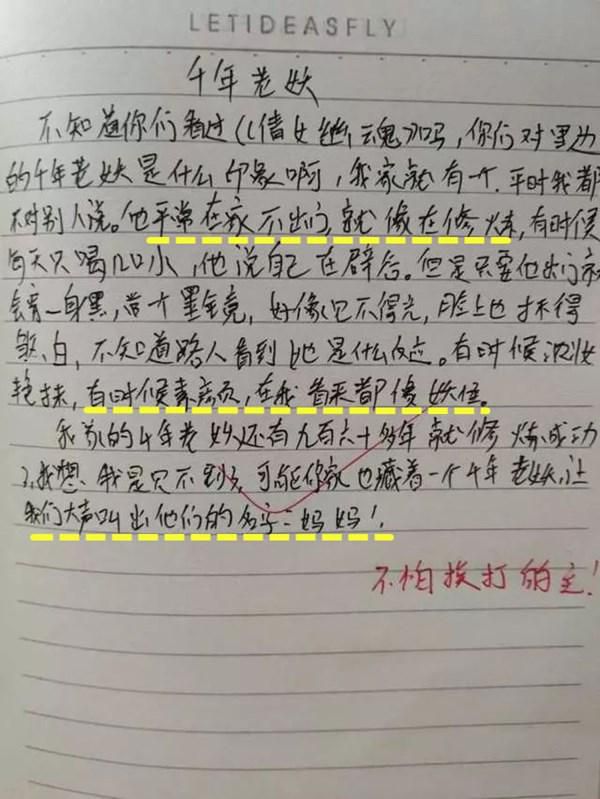 LETIDEASFLY
千年老妖
不知道你们看过《倩女幽魂》吗，你们对里边
的千年老妖是什么印象啊，我家就有一个，平时我都
不对别人说。他平常在家不出门，就像在修炼，有时候
每天只喝几口水，他说自己在辟谷。但是只要他出门就
一身黑，带个墨镜，好像见不得光，脸上也抹得
白，不知道路人看到他是什么反应。有时候浓妆
艳抹，有时候素面，在我看来都像妖怪。
我家的千年老妖还有九百六十多年就修炼成功
了，我想，我是见不到了，可能你家也藏着一个千年老妖，让
我们大声叫出他们的名字：妈妈！
不怕挨打的主！